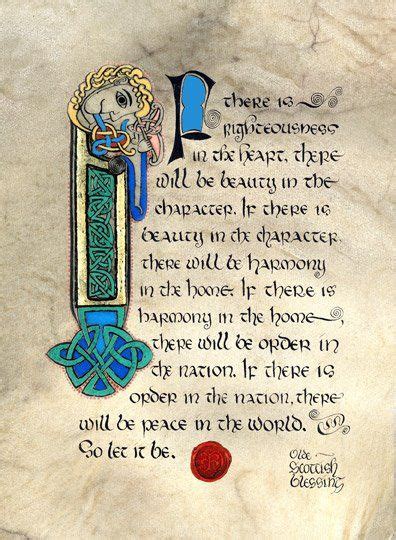 If there is
righteousness
in the heart, there
will be beauty in the
character. If there is
beauty in the character,
there will be harmony
in the home. If there is
harmony in the home,
there will be order in
the nation. If there is
order in the nation, there
will be peace in the world.
So let it be.
Olde
Scottish
Blessing